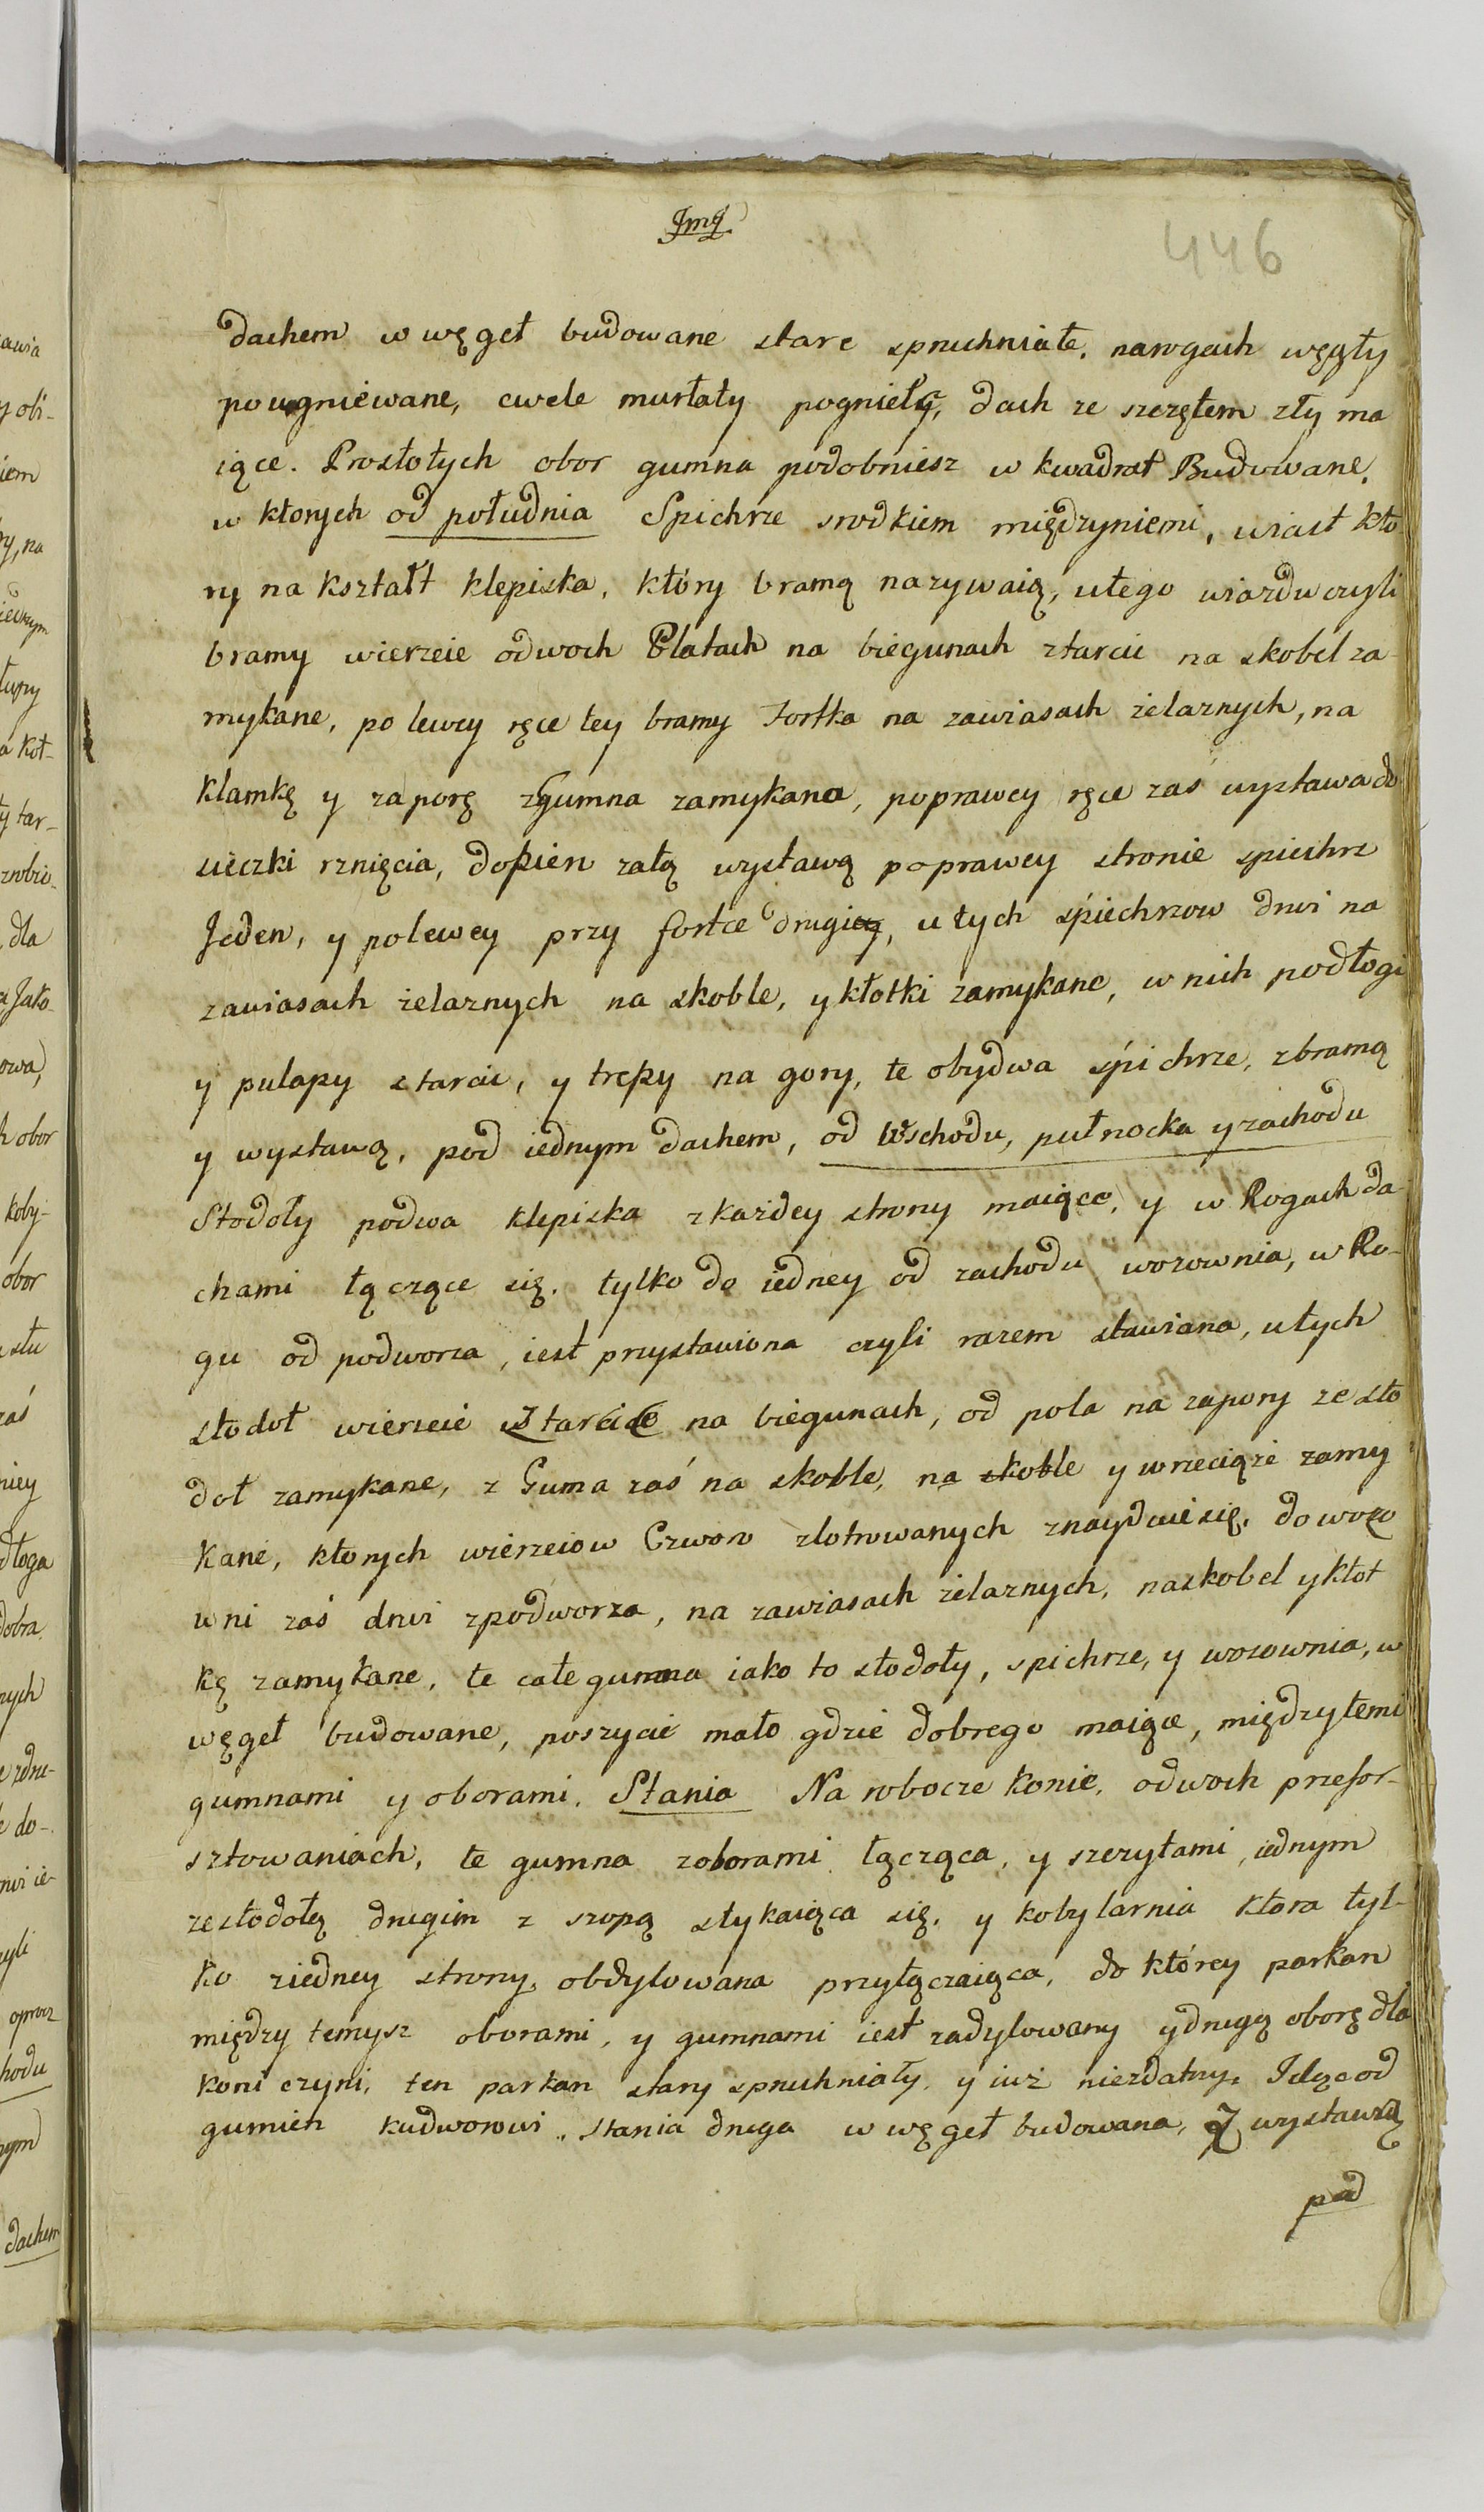 446
dachem w węgeł budowane stare spruchniałe, narogach węgły
pougniewane, cwele murłaty pogniełę, dach ze szczętem zły ma
iące. Prostotych obor gumna podobniesz w kwadrat Budowane,
w ktorych od południa Spichrze srodkiem międzyniemi, wiast kto
ry na kształt klepiska, który bramą nazywaią, utego wiazdu czyli
bramy wierzeie odwoch Płatach na biegunach ztarcic na skobel za-
mykane, po lewey ręce tey bramy Fortka na zawiasach zelaznych, na
Klamkę y zaporę zgumna zamykana, poprawey ręce zaś wystawa do
sieczki rznięcia, dopien zatą wystawą poprawey stronie spichrz
Jeden, y polewey przy fortce drugi, u tych śpiechrzow drwi na
zawiasach zelaznych na skoble, y kłotki zamykane, w nich podłogi
y pulapy ztarcic, y trepy na gory, te obydwa śpichrze, zbramą
y wystawą, pod iednym dachem, od Wschodu, pułnocka y zachodu
Stodoły podwa klepiska zkazdey strony maiące, y w Rogach da-
chami łączące się. tylko do iedney od zachodu wozownia, w Ro-
gu od podworza, iest przystawiona czyli razem stawiana, utych
stodoł wierzeie z tarcic na biegunach, od pola na zapory ze sto
doł zamykane, z Guma zaś na skoble, na skoble y wrzeciąze zamy
kane, ktorych wierzeiow Czworo zlotrowanych znayduie się, do wozo
wni zaś drwi zpodworza, na zawiasach zelaznych, naskobel ykłot
kę zamykane, te całe gumna iako to stodoły, spichrze, y wozownia, w
węgeł budowane, poszycie mało gdzie dobrego maiące, międzytemi
gumnami y oborami. Stania Na robocze konie, odwoch przefor-
sztowaniach, te gumna zoborami łącząca, y szczytami, iednym
zestodołą drugim z szopą stykaiąca się, y kobylarnia ktora tyl-
ko ziedney strony obdylowana przyłączaiąca, do którey parkan
między temysz oborami, y gumnami iest zadylowany ydrugą oborę dla
koni czyni, ten parkan stary spruchniały, y iuż niezdatny. Idąc od
gumien kudworowi. Stania druga w węgeł budowana, Z wystawką
pod